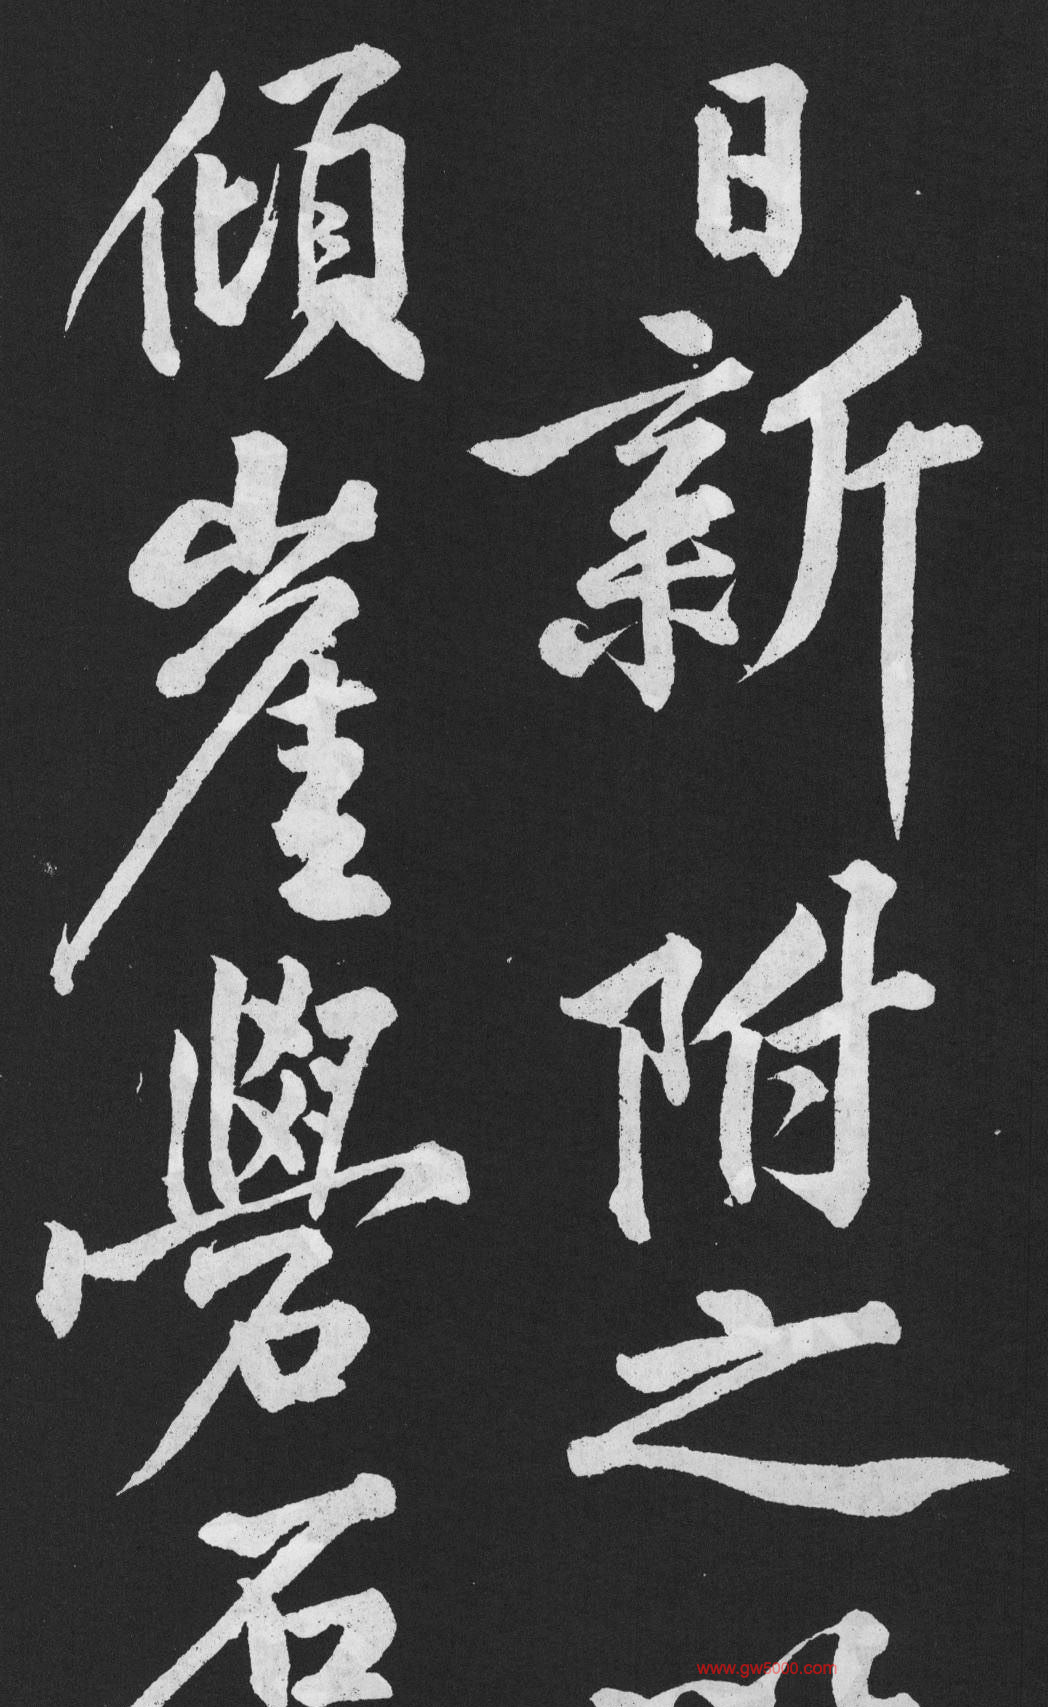 日新附之
傾崖礐石
www.gw5000.com